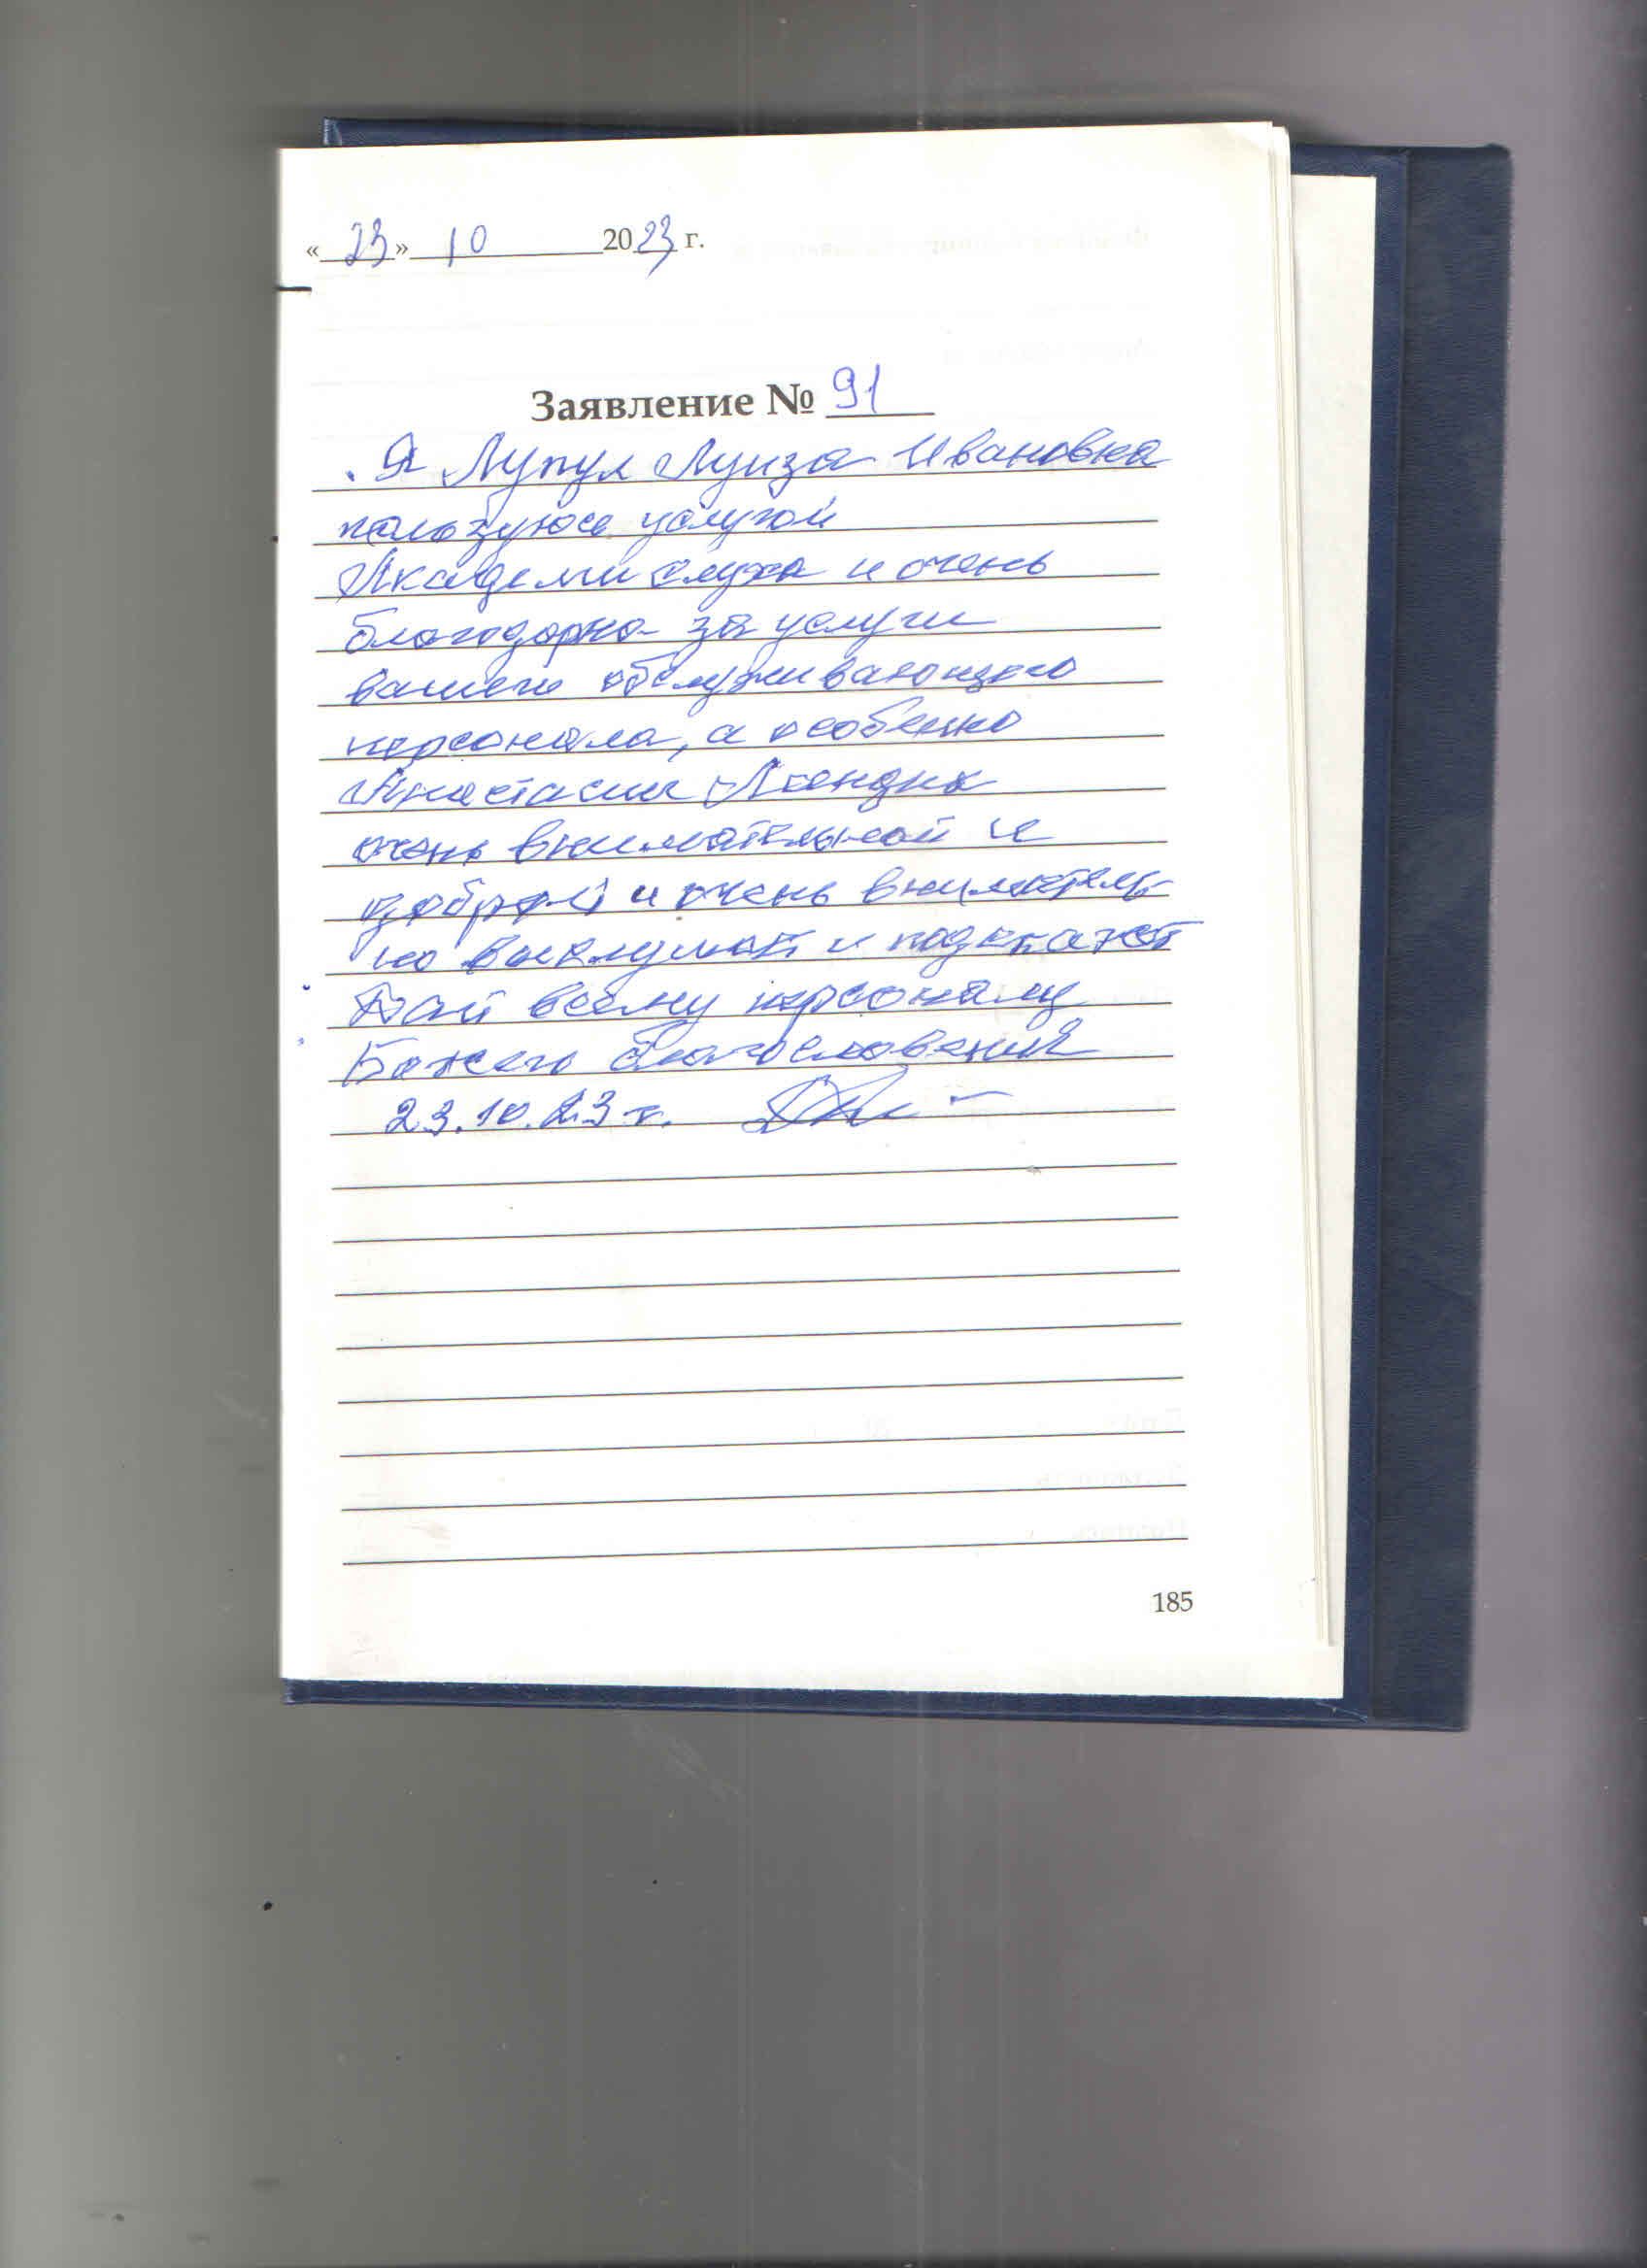 «23» 10 2023 г.
Заявление № 91
Я Лупул Луиза Ивановна
пользуюсь услугой
Академи слуха и очень
благодарна за услуги
вашего обслуживающего
персонала, а особенно
Анастасии
очень внимательной и
доброй и очень вниматель-
но выслушат и подскажет
Дай всему персоналу
Божего благословения
23.10.23 г.
185